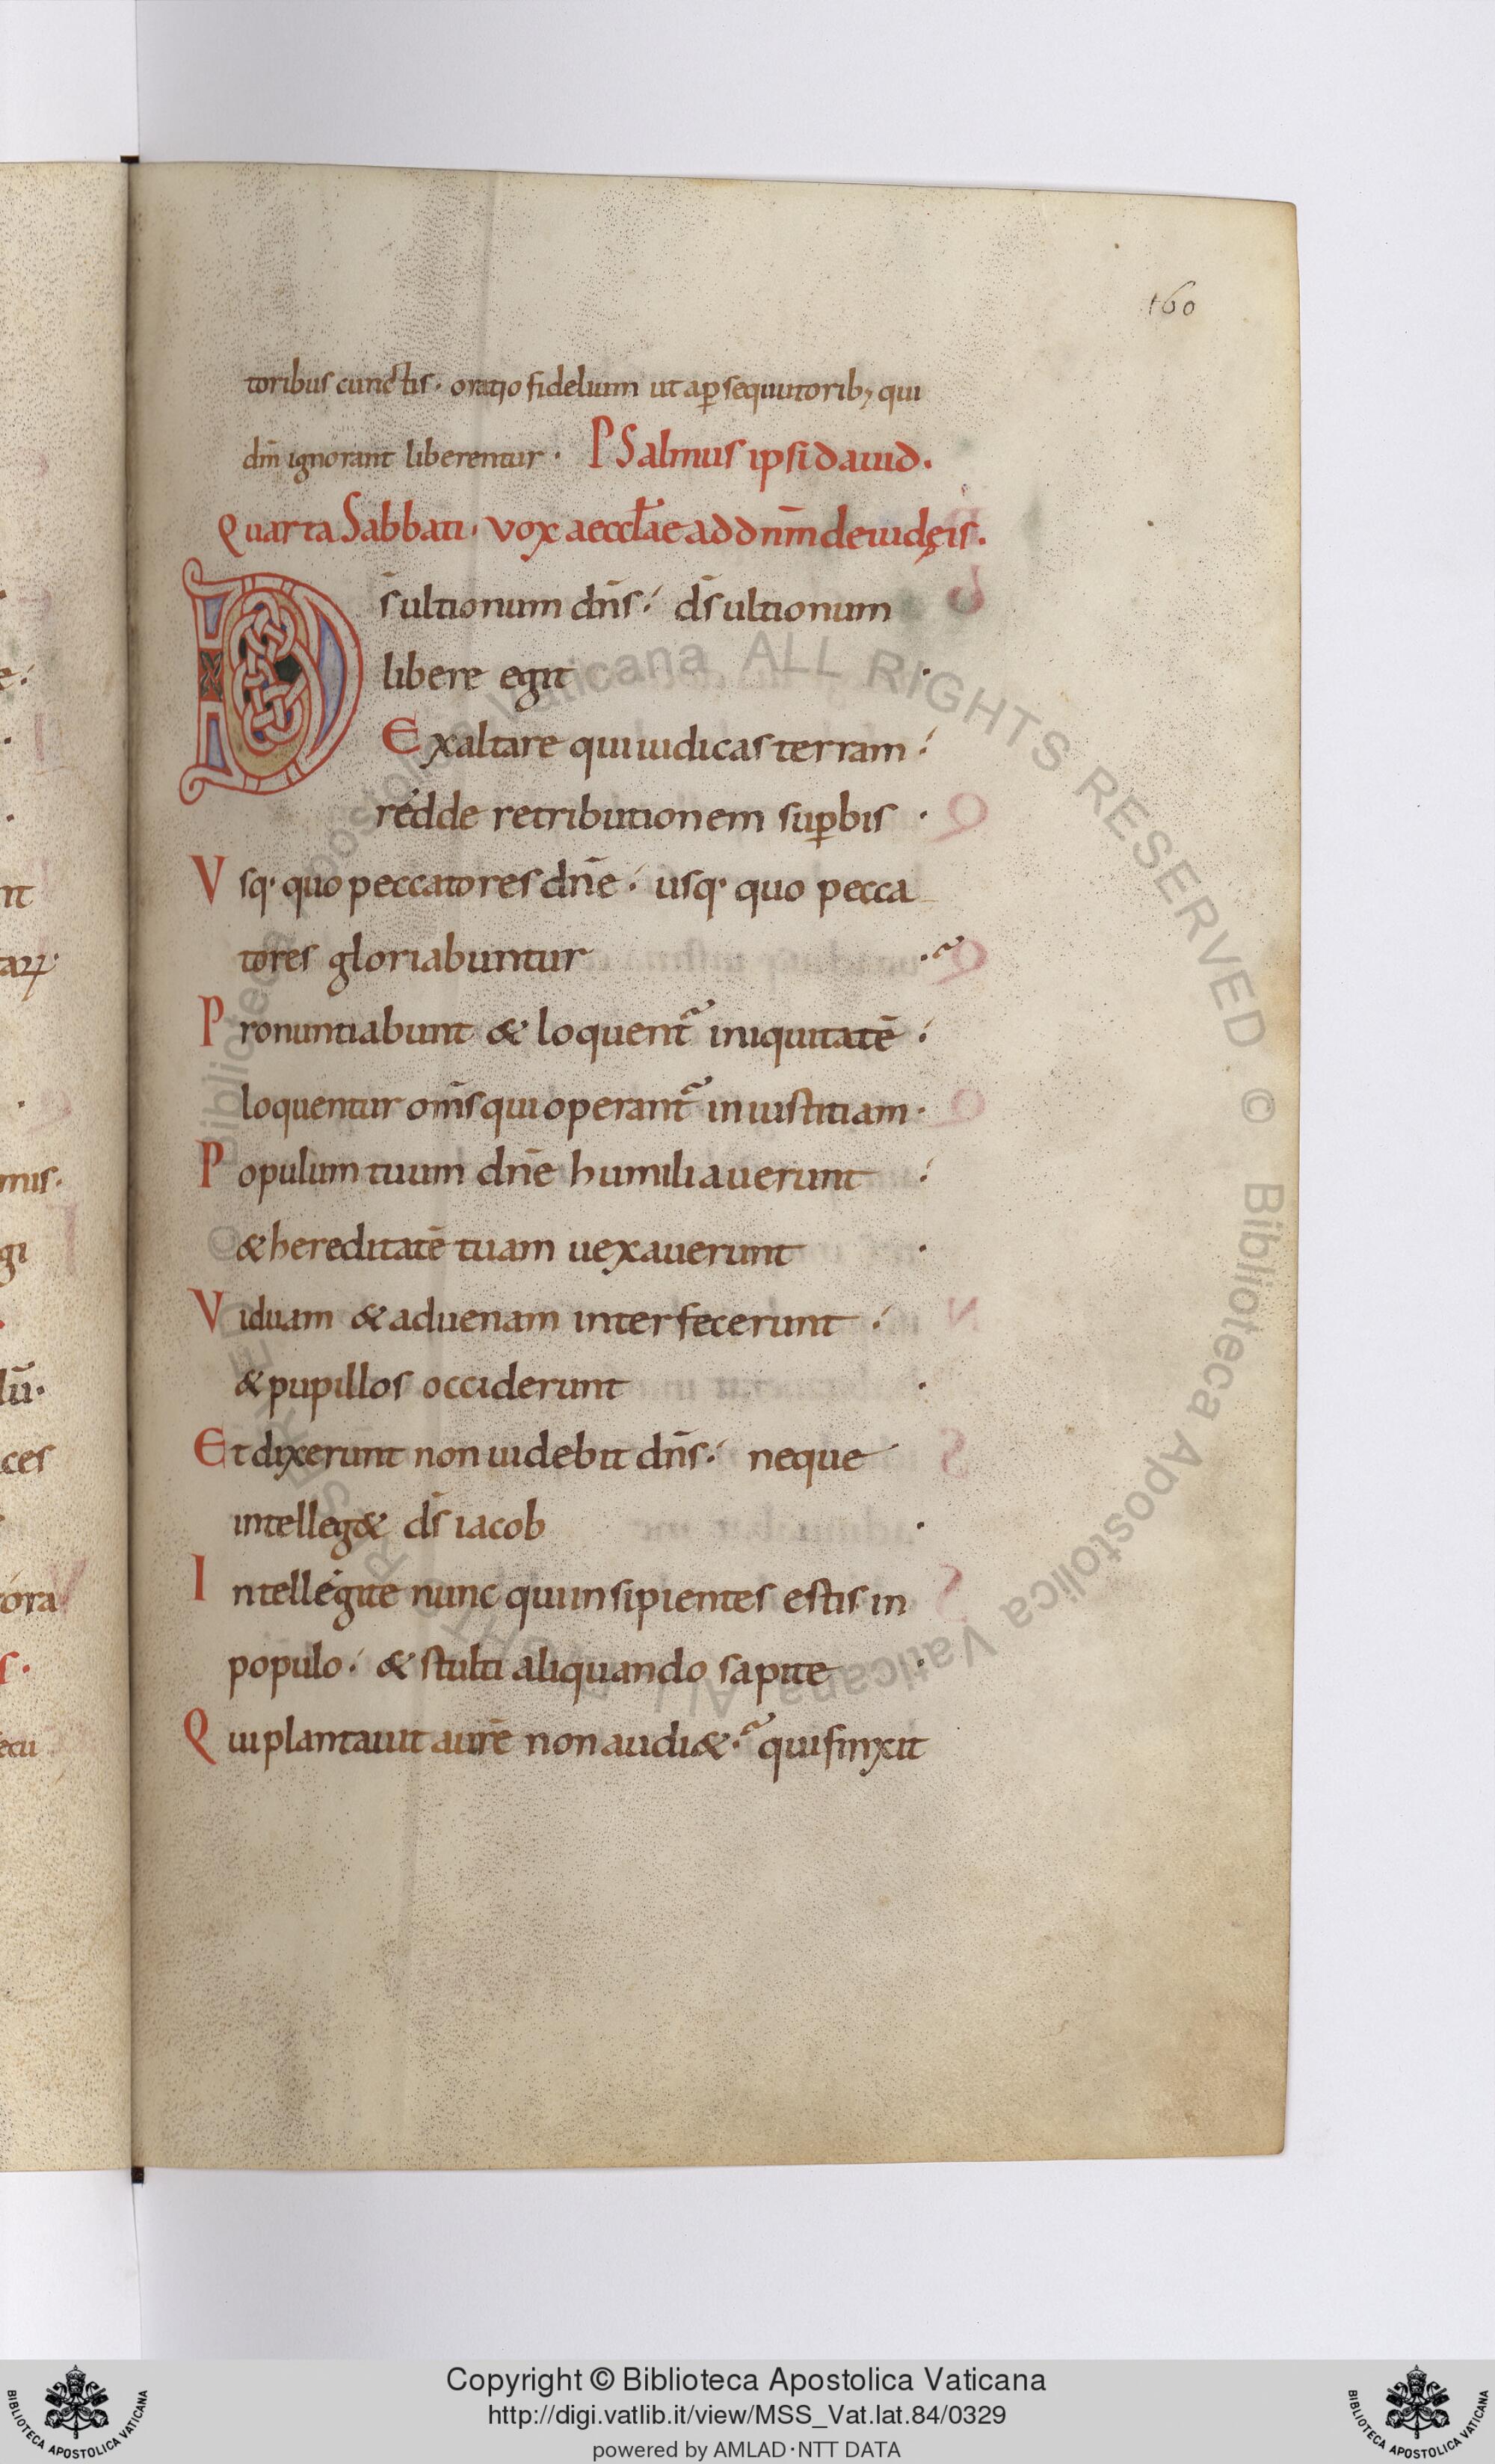 160
toribus cunctis · oratio fidelium ut a ꝑsequutorib; qui
dm̄ ignorant liberentur · PSalmus ipsi dauid.
Quarta Sabbati · vox aeccłae ad dn̄m de iudęis.
D s̄ ultionum dn̄s ./ ds̄ ultionum
libere egit ·
Exaltare qui iudicas terram ./
redde retributionem suꝑbis ·
Vsq· quo peccatores dn̄e ./ usq· quo pecca
tores gloriabuntur ·~
Pronuntiabunt & loquent᷑ iniquitatē ./
loquentur om̄s qui operant᷑ iniustitiam ·
Populum tuum dn̄e humiliauerunt ./
& hereditatē tuam uexauerunt ·
Viduam & aduenam interfecerunt ./
& pupillos occiderunt ·
Et dixerunt non uidebit dn̄s ./ neque
intelleg& ds̄ iacob ·
Intellégite nunc qui insipientes estis in
populo ./ & stulti aliquando sapite ·
Qui plantauit aurē non audi& ·~ qui finxit
nt
mis·
gi
lū·
ces
ora
ecu
© Biblioteca Apostolica Vaticana ALL RIGHTS RESERVED © Biblioteca Apostolica Vaticana ALL RIGHTS RESERVED
BIBLIOTECA APOSTOLICA VATICANA
Copyright © Biblioteca Apostolica Vaticana
http://digi.vatlib.it/view/MSS_Vat.lat.84/0329
powered by AMLAD·NTT DATA
BIBLIOTECA APOSTOLICA VATICANA